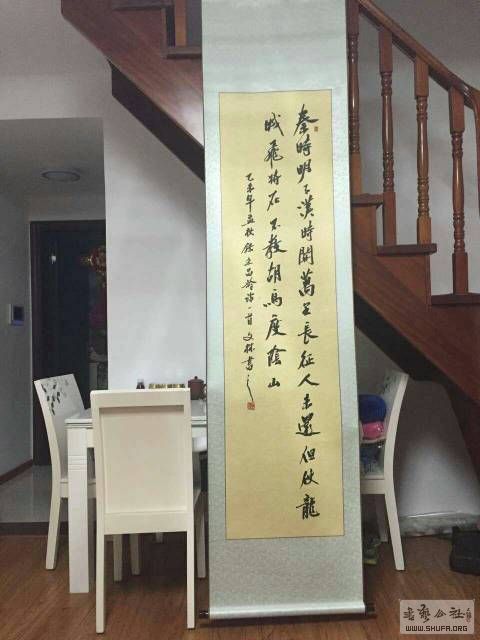 秦時明月漢時關萬里長征人未還但使龍
城飛將在不教胡馬度陰山
乙未年孟秋錄王昌齡詩一首文林書之
书艺公社
WWW.SHUFA.ORG